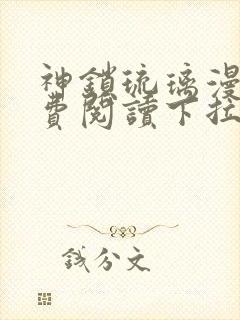 神鎖琉璃漫
費閱讀下拉
錢分文